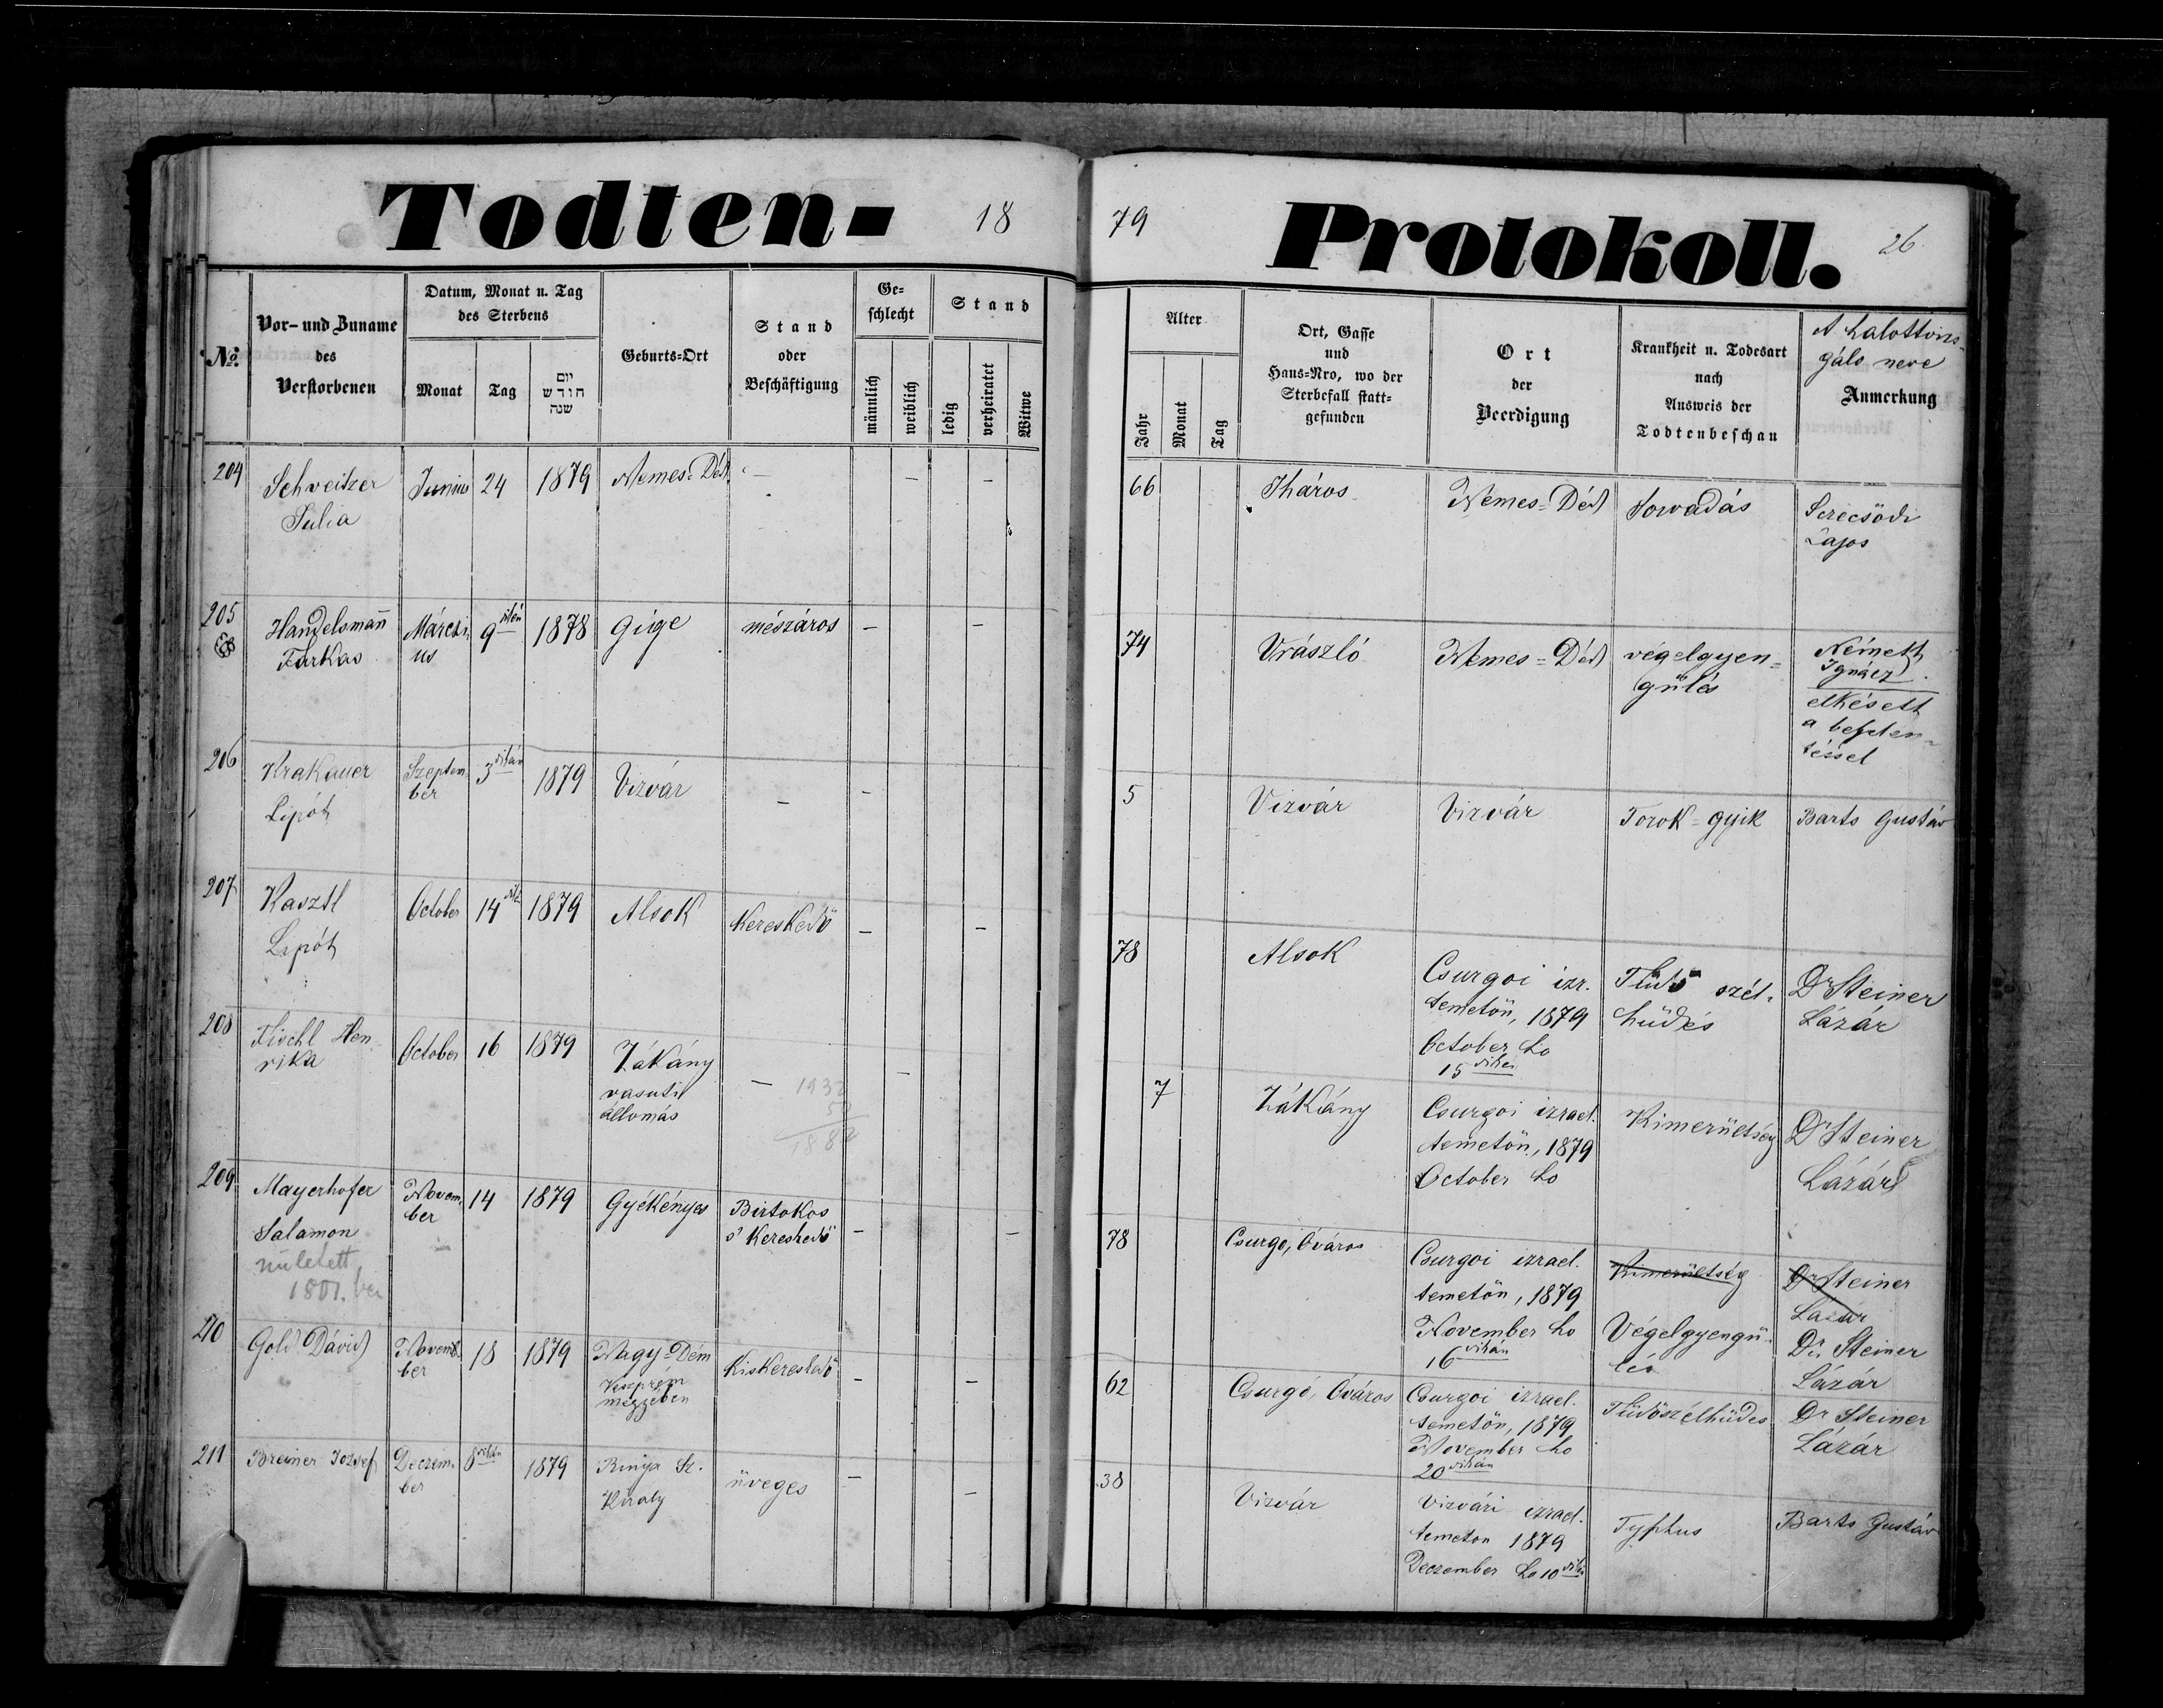 Todten-
18
79
Protokoll.
26.
No.
Vor- und Zuname
des
Verstorbenen
Datum, Monat u. Tag
des Sterbens
Monat
Tag
יום
חודש
שנה
Geburts-Ort
Stand
oder
Beschäftigung
Ge-
schlecht
männlich
weiblich
Stand
ledig
verheiratet
Witwe
Alter
Jahr
Monat
Tag
Ort, Gasse
und
Haus-Nro, wo der
Sterbefall statt-
gefunden
Ort
der
Beerdigung
Krankheit u. Todesart
nach
Ausweis der
Todtenbeschau
neve
Anmerkung
204
Schveitzer
Julia
Junius
24
1879
Nemes=Déd
—
—
—
66
Iháros
Nemes=Déd
Sorvadás
Szecsödi
Lajos
205
Handelsman̄
Farkas
Márczi
us
9
1878
Gige
mészáros
—
—
74
Vrászló
Nemes=Déd
végelgyen=
gülés
Németh
Ignácz.
elkésett
a bejelen=
téssel
206
Krakauer
Lipót
Szeptem
ber
3
1879
Vizvár
—
—
5
Vizvár
Vizvár
Torok=gyik
Barts Gustáv
207
Kasztl
Lipót
October
14
1879
Alsok
Kereskedö
—
—
78
Alsok
Csurgoi izr.
temetön, 1879
October ho
15
szél=
hüdés
Dr Steiner
Lázár
208
Fischl Hen
rika
October
16
1879
Zákány
vasuti
állomás
—
—
7
Zákány
Csurgoi izrael.
temetön, 1879
October ho
Kimerültség
Dr Steiner
Lázár
209
Mayerhofer
Salamon
1801.
Novem
ber
14
1879
Gyékényes
Birtokos
s' Kereskedö
—
—
78
Csurgo, Óváros
Csurgoi izrael.
temetön, 1879
November ho
16 dikán
Kimerültség
Végelgyengü-
lés
Dr Steiner
Lázár
Dr. Steiner
Lázár
210
Gold Dávid
Novem
ber
18
1879
Nagy=Dém
Veszprém
megyében
Kiskereskedö
—
—
62
Csurgó, Óváros
Csurgoi izrael.
temetön, 1879
November ho
20 dikán
Tüdöszélhüdes
Dr Steiner
Lázár
211
Breiner József
Deczem-
ber
8
1879
Rinya Sz.
Kiraly
üveges
—
—
38
Vizvár
Vizvári izrael.
temeton 1879
Deczember ho 10
Typhus
Barts Gustáv